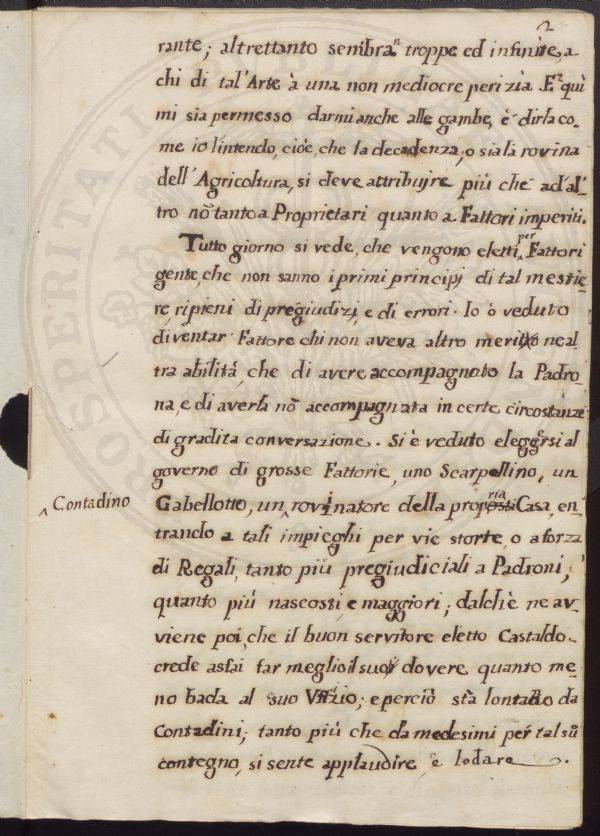 2
rante; altrettanto sembra^n troppe ed infinite, a
chi di tal'Arte à una non mediocre perizia. E quì
mi sia permesso darmi anche alle gambe, è dirla co-
me io l'intendo, cioè, che la decadenza, o sia la rovina
dell'Agricoltura, si deve attribuire più che ad'al-
tro nõ tanto a Proprietari quanto a Fattori imperiti.
Tutto giorno si vede, che vengono eletti per Fattori
gente, che non sanno i primi principj di tal mestie-
re, ripieni di pregiudizi, e di errori. Io ò veduto
diventar Fattore chi non aveva altro merito ne al-
tra abilità, che di avere accompagnato la Padro-
na, e di averla nõ accompagnata in certe circostanze
di gradita conversazione. Si è veduto eleggersi al
governo di grosse Fattorie, uno Scarpellino, un
Gabellotto, un ^ rovinatore della propria Casa, en-
^ Contadino
trando a tali impieghi per vie storte, o a forza
di Regali, tanto più pregiudiciali a Padroni,
quanto più nascosti, e maggiori; dalchè ne av-
viene poi, che il buon servitore eletto Castaldo
crede assai far meglio il suo dovere quanto me-
no bada al suo Uffizio; e perciò sta lontano da
Contadini; tanto più che da medesimi per tal sũ
contegno, si sente applaudire, e lodare.